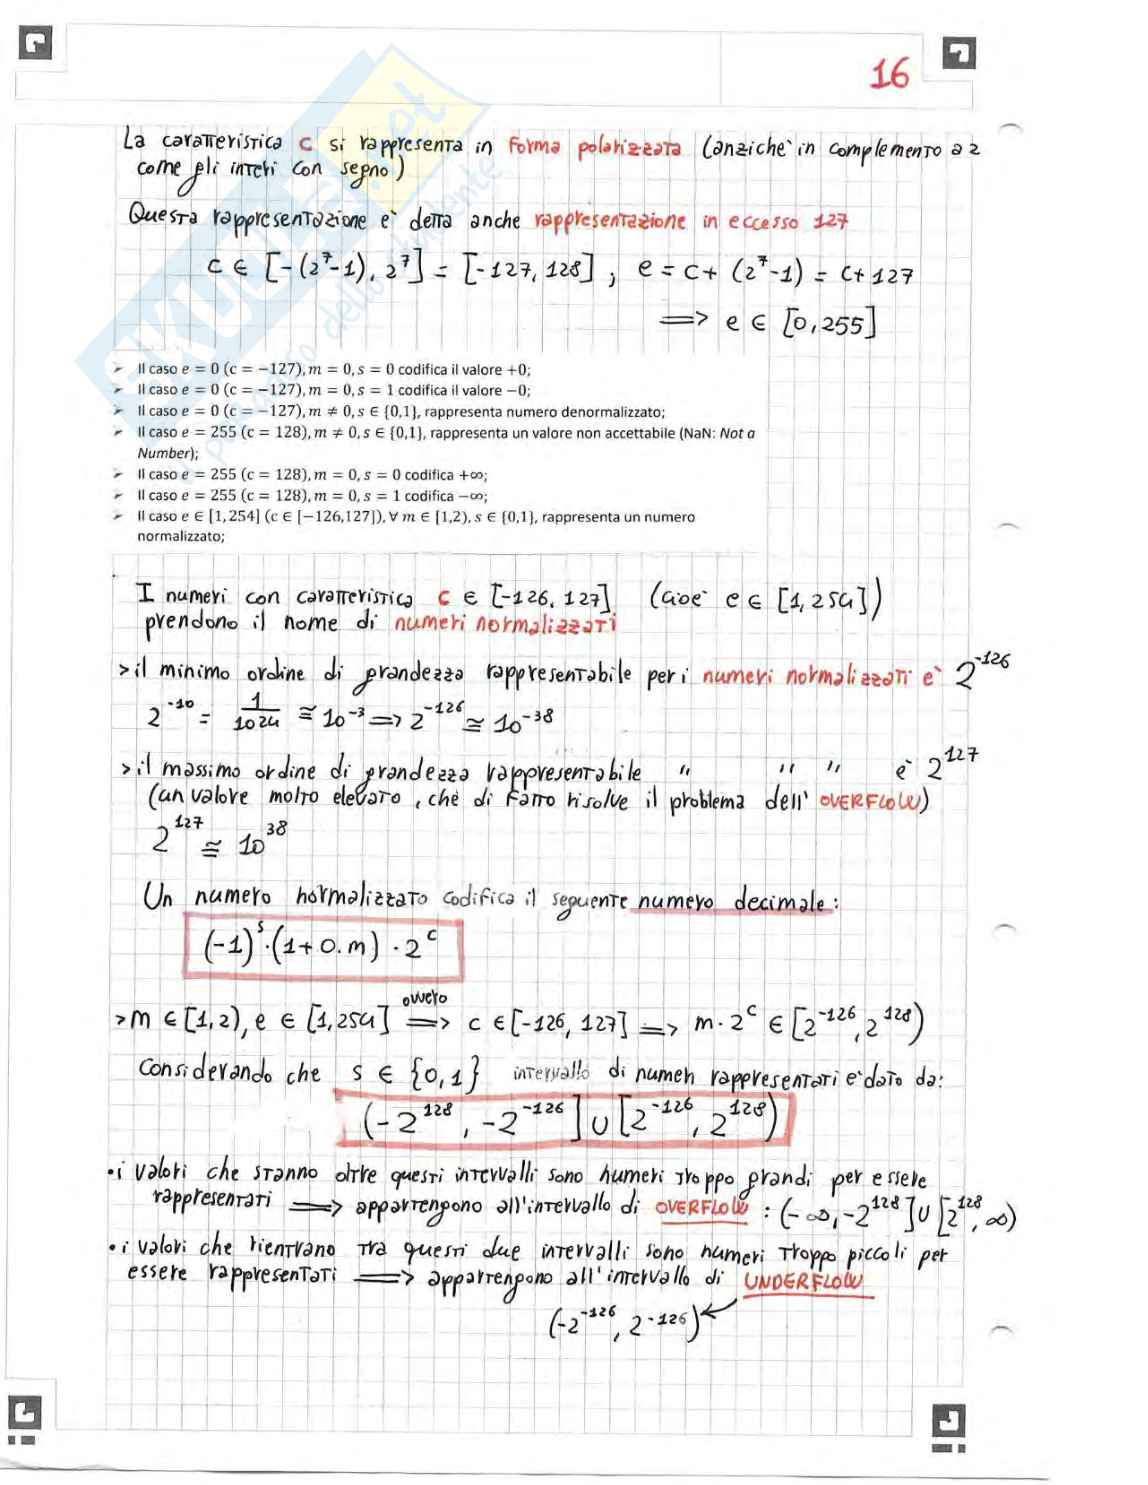 16
La caratteristica c si rappresenta in forma polarizzata (anziché in complemento a 2
come gli interi con segno)
Questa rappresentazione è detta anche rappresentazione in eccesso 127
c ∈ [-(2⁷-1), 2⁷] = [-127, 128] ; e = c + (2⁷-1) = c + 127
⟹ e ∈ [0, 255]
➢ Il caso e = 0 (c = −127), m = 0, s = 0 codifica il valore +0;
➢ Il caso e = 0 (c = −127), m = 0, s = 1 codifica il valore −0;
➢ Il caso e = 0 (c = −127), m ≠ 0, s ∈ {0,1}, rappresenta numero denormalizzato;
➢ Il caso e = 255 (c = 128), m ≠ 0, s ∈ {0,1}, rappresenta un valore non accettabile (NaN: Not a
Number);
➢ Il caso e = 255 (c = 128), m = 0, s = 0 codifica +∞;
➢ Il caso e = 255 (c = 128), m = 0, s = 1 codifica −∞;
➢ Il caso e ∈ [1, 254] (c ∈ [−126,127]), ∀ m ∈ [1,2), s ∈ {0,1}, rappresenta un numero
normalizzato;
I numeri con caratteristica c ∈ [-126, 127] (cioè e ∈ [1, 254])
prendono il nome di numeri normalizzati
> il minimo ordine di grandezza rappresentabile per i numeri normalizzati è 2⁻¹²⁶
2⁻¹⁰ = 1/1024 ≅ 10⁻³ ⟹ 2⁻¹²⁶ ≅ 10⁻³⁸
> il massimo ordine di grandezza rappresentabile " " " è 2¹²⁷
(un valore molto elevato, che di fatto risolve il problema dell' OVERFLOW)
2¹²⁷ ≅ 10³⁸
Un numero normalizzato codifica il seguente numero decimale:
(-1)ˢ·(1+0.m) · 2ᶜ
> m ∈ [1,2), e ∈ [1,254] ovvero ⟹ c ∈ [-126, 127] ⟹ m · 2ᶜ ∈ [2⁻¹²⁶, 2¹²⁸)
Considerando che s ∈ {0,1} intervallo di numeri rappresentati è dato da:
(-2¹²⁸, -2⁻¹²⁶] ∪ [2⁻¹²⁶, 2¹²⁸)
• i valori che stanno oltre questi intervalli sono numeri troppo grandi per essere
rappresentati ⟹ appartengono all'intervallo di OVERFLOW : (-∞, -2¹²⁸] ∪ [2¹²⁸, ∞)
• i valori che rientrano tra questi due intervalli sono numeri troppo piccoli per
essere rappresentati ⟹ appartengono all'intervallo di UNDERFLOW
(-2⁻¹²⁶, 2⁻¹²⁶)